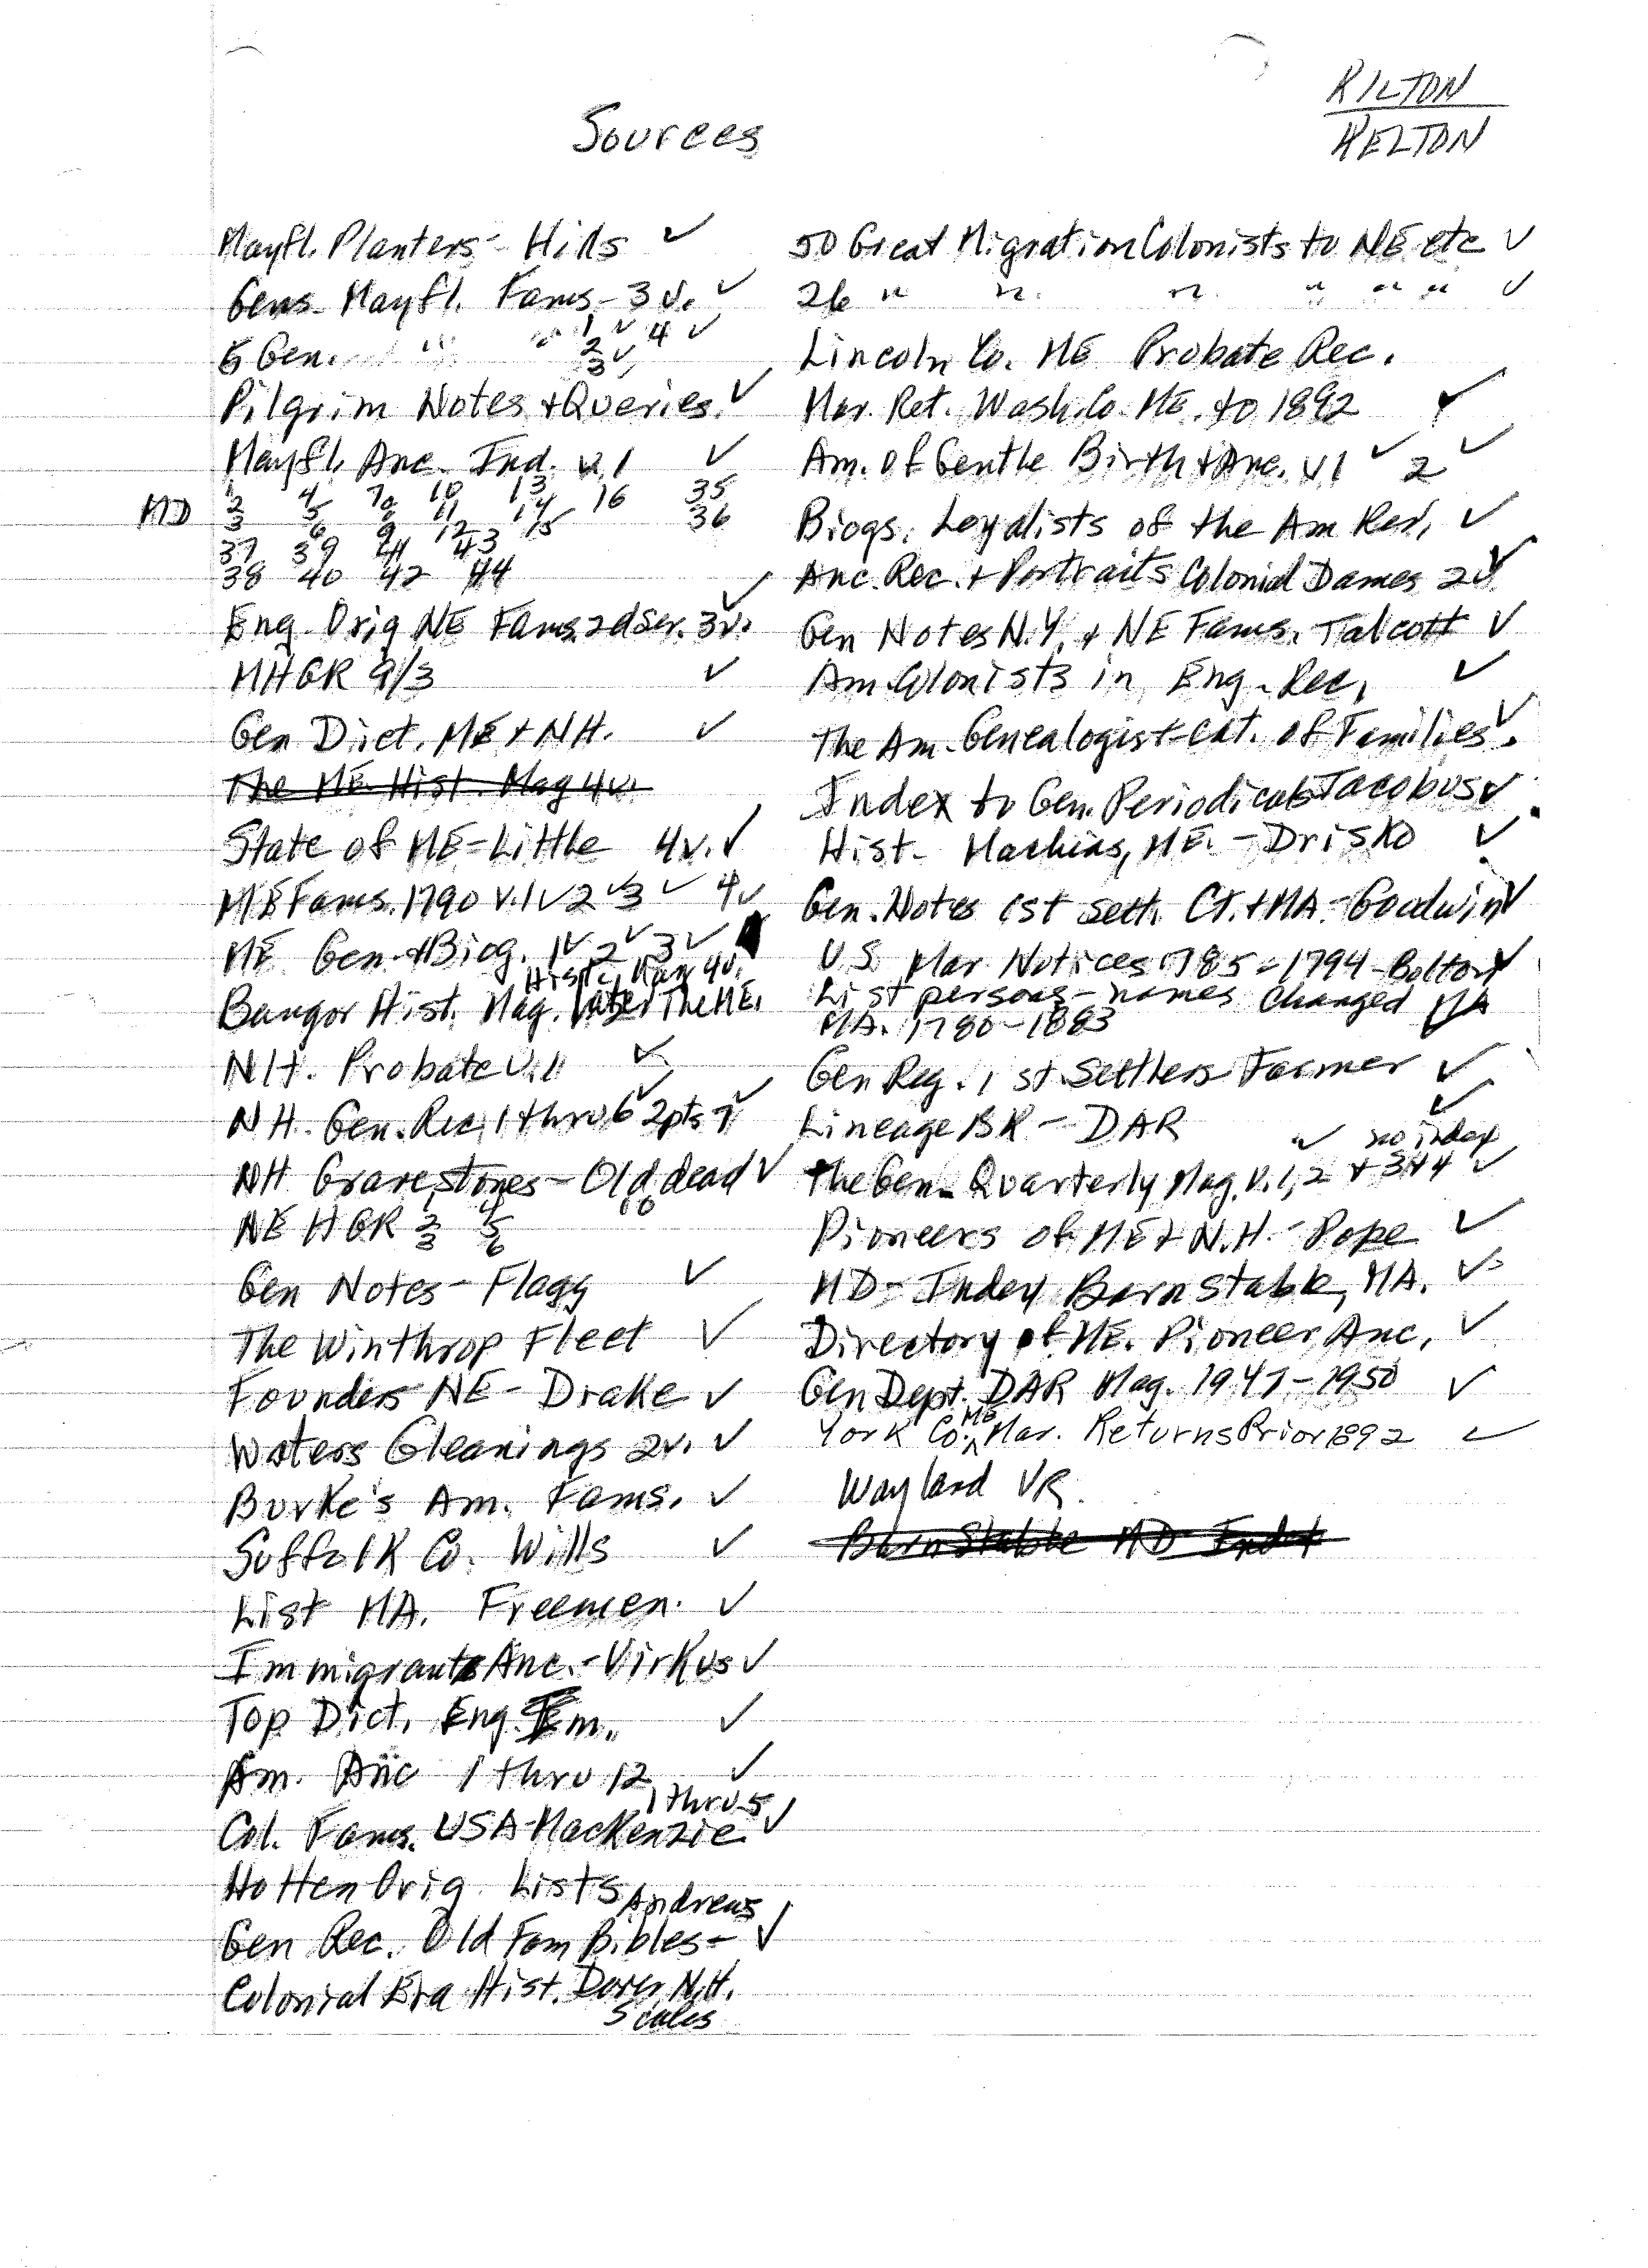 KILTON
KELTON
Sources
Mayfl. Planters - Hills ✓
Gens Mayfl. Fams - 3 v. ✓
5 Gen. " " 1 ✓ 4 ✓
2
3 ✓
Pilgrim Notes + Queries. ✓
Mayfl. Anc. Ind. v. 1 ✓
1 4 7 10 13 16 35
MD 2 5 8 11 14 36
3 6 9 12 15
37 39 41 43
38 40 42 44
Eng. Orig NE Fams. 2d Ser. 3v. ✓
MHGR 9/3 ✓
Gen Dict. ME + NH. ✓
The ME. Hist. Mag 4v.
State of ME - Little 4v. ✓
ME Fams. 1790 v. 1 ✓ 2 ✓ 3 ✓ 4 ✓
ME Gen. + Biog. 1 ✓ 2 ✓ 3 ✓
Hist. Mag 4v.
Bangor Hist. Mag. later The ME.
N.H. Probate v. 1 ✓
NH. Gen. Rec. 1 thru 6 ✓ 2pts 7 ✓
NH Gravestones - Old dead ✓
NE HGR 2 4
3 5
6
Gen Notes - Flagg ✓
The Winthrop Fleet ✓
Founders NE - Drake ✓
Waters Gleanings 2v. ✓
Burke's Am. Fams. ✓
Suffolk Co. Wills ✓
List MA. Freemen. ✓
Immigrant Anc. - Virkus ✓
Top Dict. Eng. Em. ✓
Am. Anc 1 thru 12 ✓
1 thru 5
Col. Fams. USA - MacKenzie ✓
Hotten Orig. Lists
Andrews
Gen Rec. Old Fam Bibles - ✓
Colonial Era Hist. Dover N.H.
Scales
50 Great Migration Colonists to NE etc ✓
26 " " " " " " ✓
Lincoln Co. ME Probate Rec.
Mar. Ret. Wash. Co. ME. to 1892 ✓
Am. of Gentle Birth + Anc. v 1 ✓ 2 ✓
Biogs. Loyalists of the Am Rev. ✓
Anc. Rec. + Portraits Colonial Dames 2v ✓
Gen Notes N.Y. + NE Fams. Talcott ✓
Am. Colonists in Eng. Rec. ✓
The Am. Genealogist - Cat. of Families ✓.
Index to Gen. Periodicals Jacobus ✓
Hist. Machias, ME. - Drisko ✓
Gen. Notes 1st Sett. CT. + MA. - Goodwin ✓
U.S. Mar Notices 1785 - 1794 - Bolton ✓
List persons - names changed MA
MA. 1780 - 1883
Gen Reg. 1st Settlers Farmer ✓
Lineage BK - DAR ✓
✓ no index
The Gen. Quarterly Mag. v. 1, 2 + 3 + 4 ✓
Pioneers of ME + N.H. - Pope ✓
MD - Index Barnstable, MA. ✓
Directory of ME. Pioneer Anc. ✓
Gen Dept. DAR Mag. 1947 - 1950 ✓
York Co. ME Mar. Returns Prior 1892 ✓
Wayland VR.
Barnstable MD Index